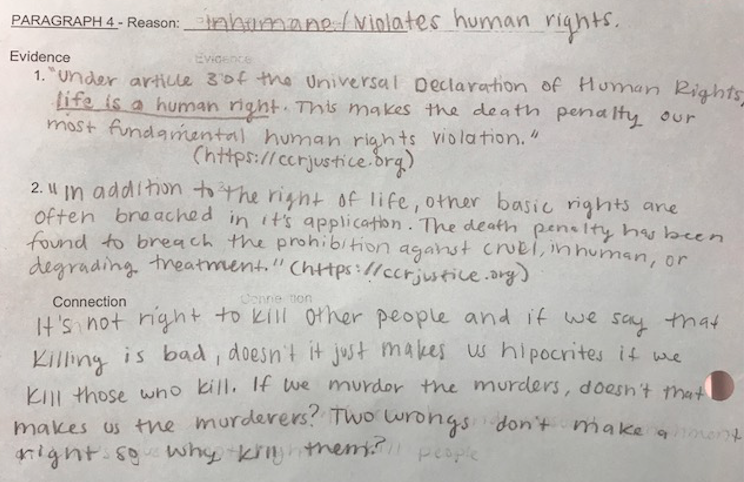 PARAGRAPH 4 - Reason: inhumane/violates human rights.
Evidence Evidence
1. "Under article 3 of the Universal Declaration of Human Rights,
life is a human right. This makes the death penalty our
most fundamental human rights violation."
(https://ccrjustice.org)
2. "In addition to the right of life, other basic rights are
often breached in it's application. The death penalty has been
found to breach the prohibition against cruel, inhuman, or
degrading treatment." (https://ccrjustice.org)
Connection Connection
It's not right to kill other people and if we say that
killing is bad, doesn't it just makes us hipocrites if we
kill those who kill. If we murder the murders, doesn't that
makes us the murderers? Two wrongs don't make a
right so why kill them? people